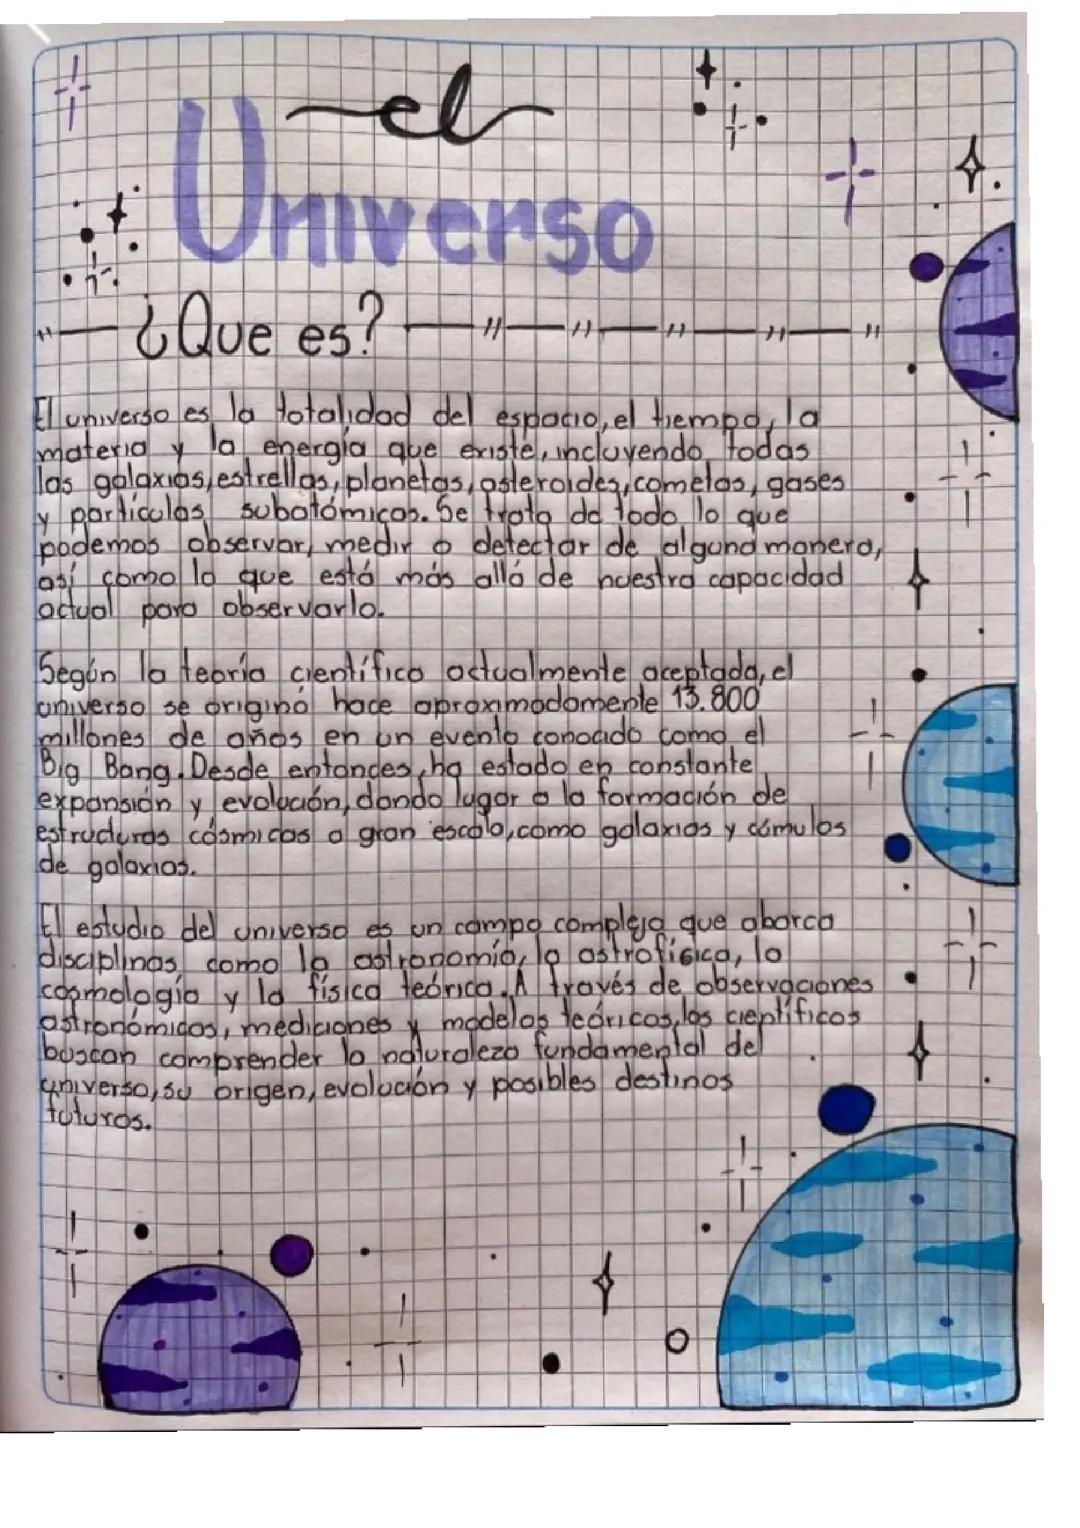 el
Universo
¿Que es?
El universo es la totalidad del espacio, el tiempo, la
materia y la energía que existe, incluyendo todas
las galaxias, estrellas, planetas, asteroides, cometas, gases
y partículas subatómicas. Se trata de todo lo que
podemos observar, medir o detectar de alguna manera,
así como lo que está más allá de nuestra capacidad
actual para observarlo.
Según la teoría científica actualmente aceptada, el
universo se originó hace aproximadamente 13.800
millones de años en un evento conocido como el
Big Bang. Desde entonces, ha estado en constante
expansión y evolución, dando lugar a la formación de
estructuras cósmicas a gran escala, como galaxias y cúmulos
de galaxias.
El estudio del universo es un campo complejo que abarca
disciplinas como la astronomía, la astrofísica, la
cosmología y la física teórica. A través de observaciones
astronómicas, mediciones y modelos teóricos, los científicos
buscan comprender la naturaleza fundamental del
universo, su origen, evolución y posibles destinos
futuros.